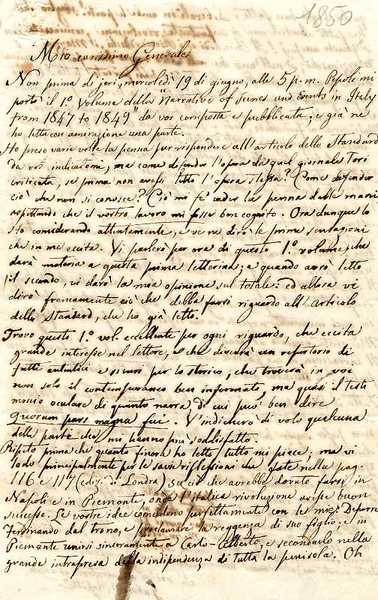 1850
Mio carissimo Generale
Non prima di jeri, mercoledì 19 di giugno, alle 5 p.m. Pepoli mi
portò il 1.º Volume della "Narrative of Scenes and Events in Italy
from 1847 to 1849 da voi composta e pubblicata, e già ne
ho letta con ammirazione una parte.
Ho preso varie volte la penna per rispondere all'articolo dello Standard
da voi indicatomi, ma come difender l'opera da quel giornale Tori
criticata, se prima non avessi letto l'opera stessa? Come difender
ciò che non si conosce? Ciò mi fè cader la penna dalle mani
aspettando che il vostro lavoro mi fosse ben cognito. Ora dunque lo
sto considerando attentamente, e ve ne dirò le prime sensazioni
che in me eccita. Vi parlerò per ora di questo 1.º volume, che
darà materia a questa prima letterina, e quando avrò letto
il secondo, vi darò la mia opinione sul totale: ed allora vi
dirò francamente ciò che debba farsi riguardo all'Articolo
dello Standard, che ho già letto.
Trovo questo 1.º vol. eccellente per ogni riguardo, che eccita
grande interesse nel lettore, e che diverrà un repertorio di
fatti autentici e sicuri per lo storico, che troverà in voi
non solo il contemporaneo ben informato, ma quasi il testi
monio oculare di quanto narra, di cui può ben dire
Quorum pars magna fui. V'indicherò di volo qualcuna
delle parti che mi hanno più soddisfatto.
Ripeto prima che quanto finora ho letto tutto mi piace, ma vi
lodo principalmente per le savie riflessioni che fate nella pag.
116 e 117 (ediz. di Londra) su ciò che avrebbe dovuto farsi in
Napoli e in Piemonte, onde l'Italica rivoluzione avesse buon
successo. Le vostre idee coincidono perfettamente con le mie: Deporre
Ferdinando dal trono, e proclamare la reggenza di suo figlio, e in
Piemonte unirsi sinceramente a Carlo-Alberto, e secondarlo nella
grande intrapresa della indipendenza di tutta la penisola. Oh